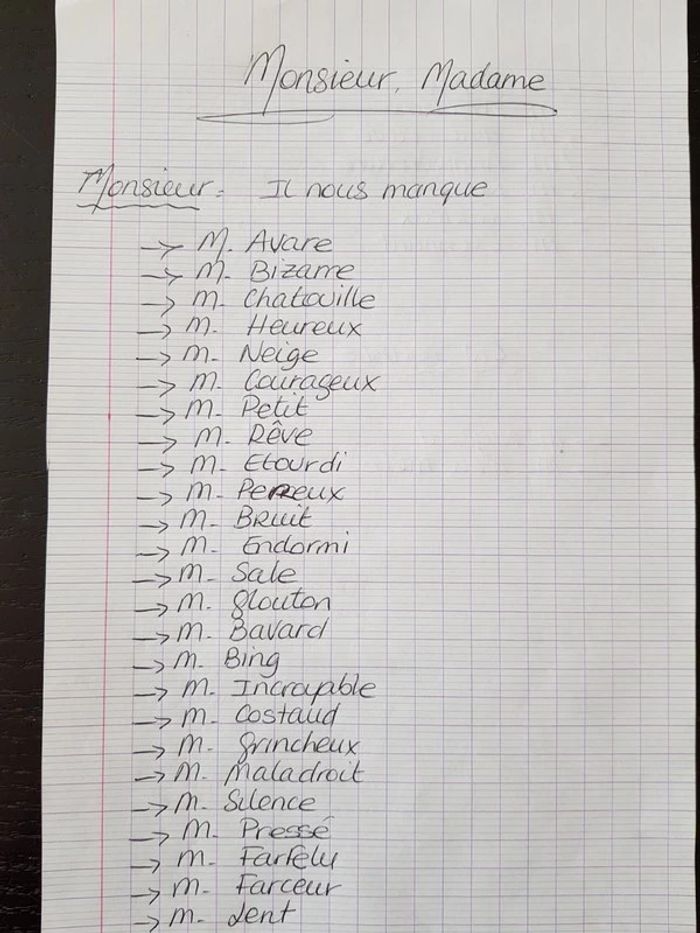 Monsieur, Madame
Monsieur : Il nous manque
→ M. Avare
→ M. Bizarre
→ M. Chatouille
→ M. Heureux
→ M. Neige
→ M. Courageux
→ M. Petit
→ M. Rêve
→ M. Etourdi
→ M. Pereux
→ M. Bruit
→ M. Endormi
→ M. Sale
→ M. Glouton
→ M. Bavard
→ M. Bing
→ M. Incroyable
→ M. Costaud
→ M. Grincheux
→ M. Maladroit
→ M. Silence
→ M. Pressé
→ M. Farfelu
→ M. Farceur
→ M. Lent